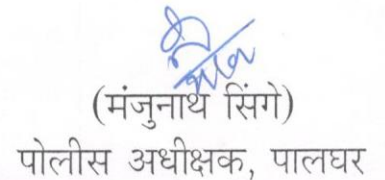 (मंजुनाथ सिंगे)
पोलीस अधीक्षक, पालघर